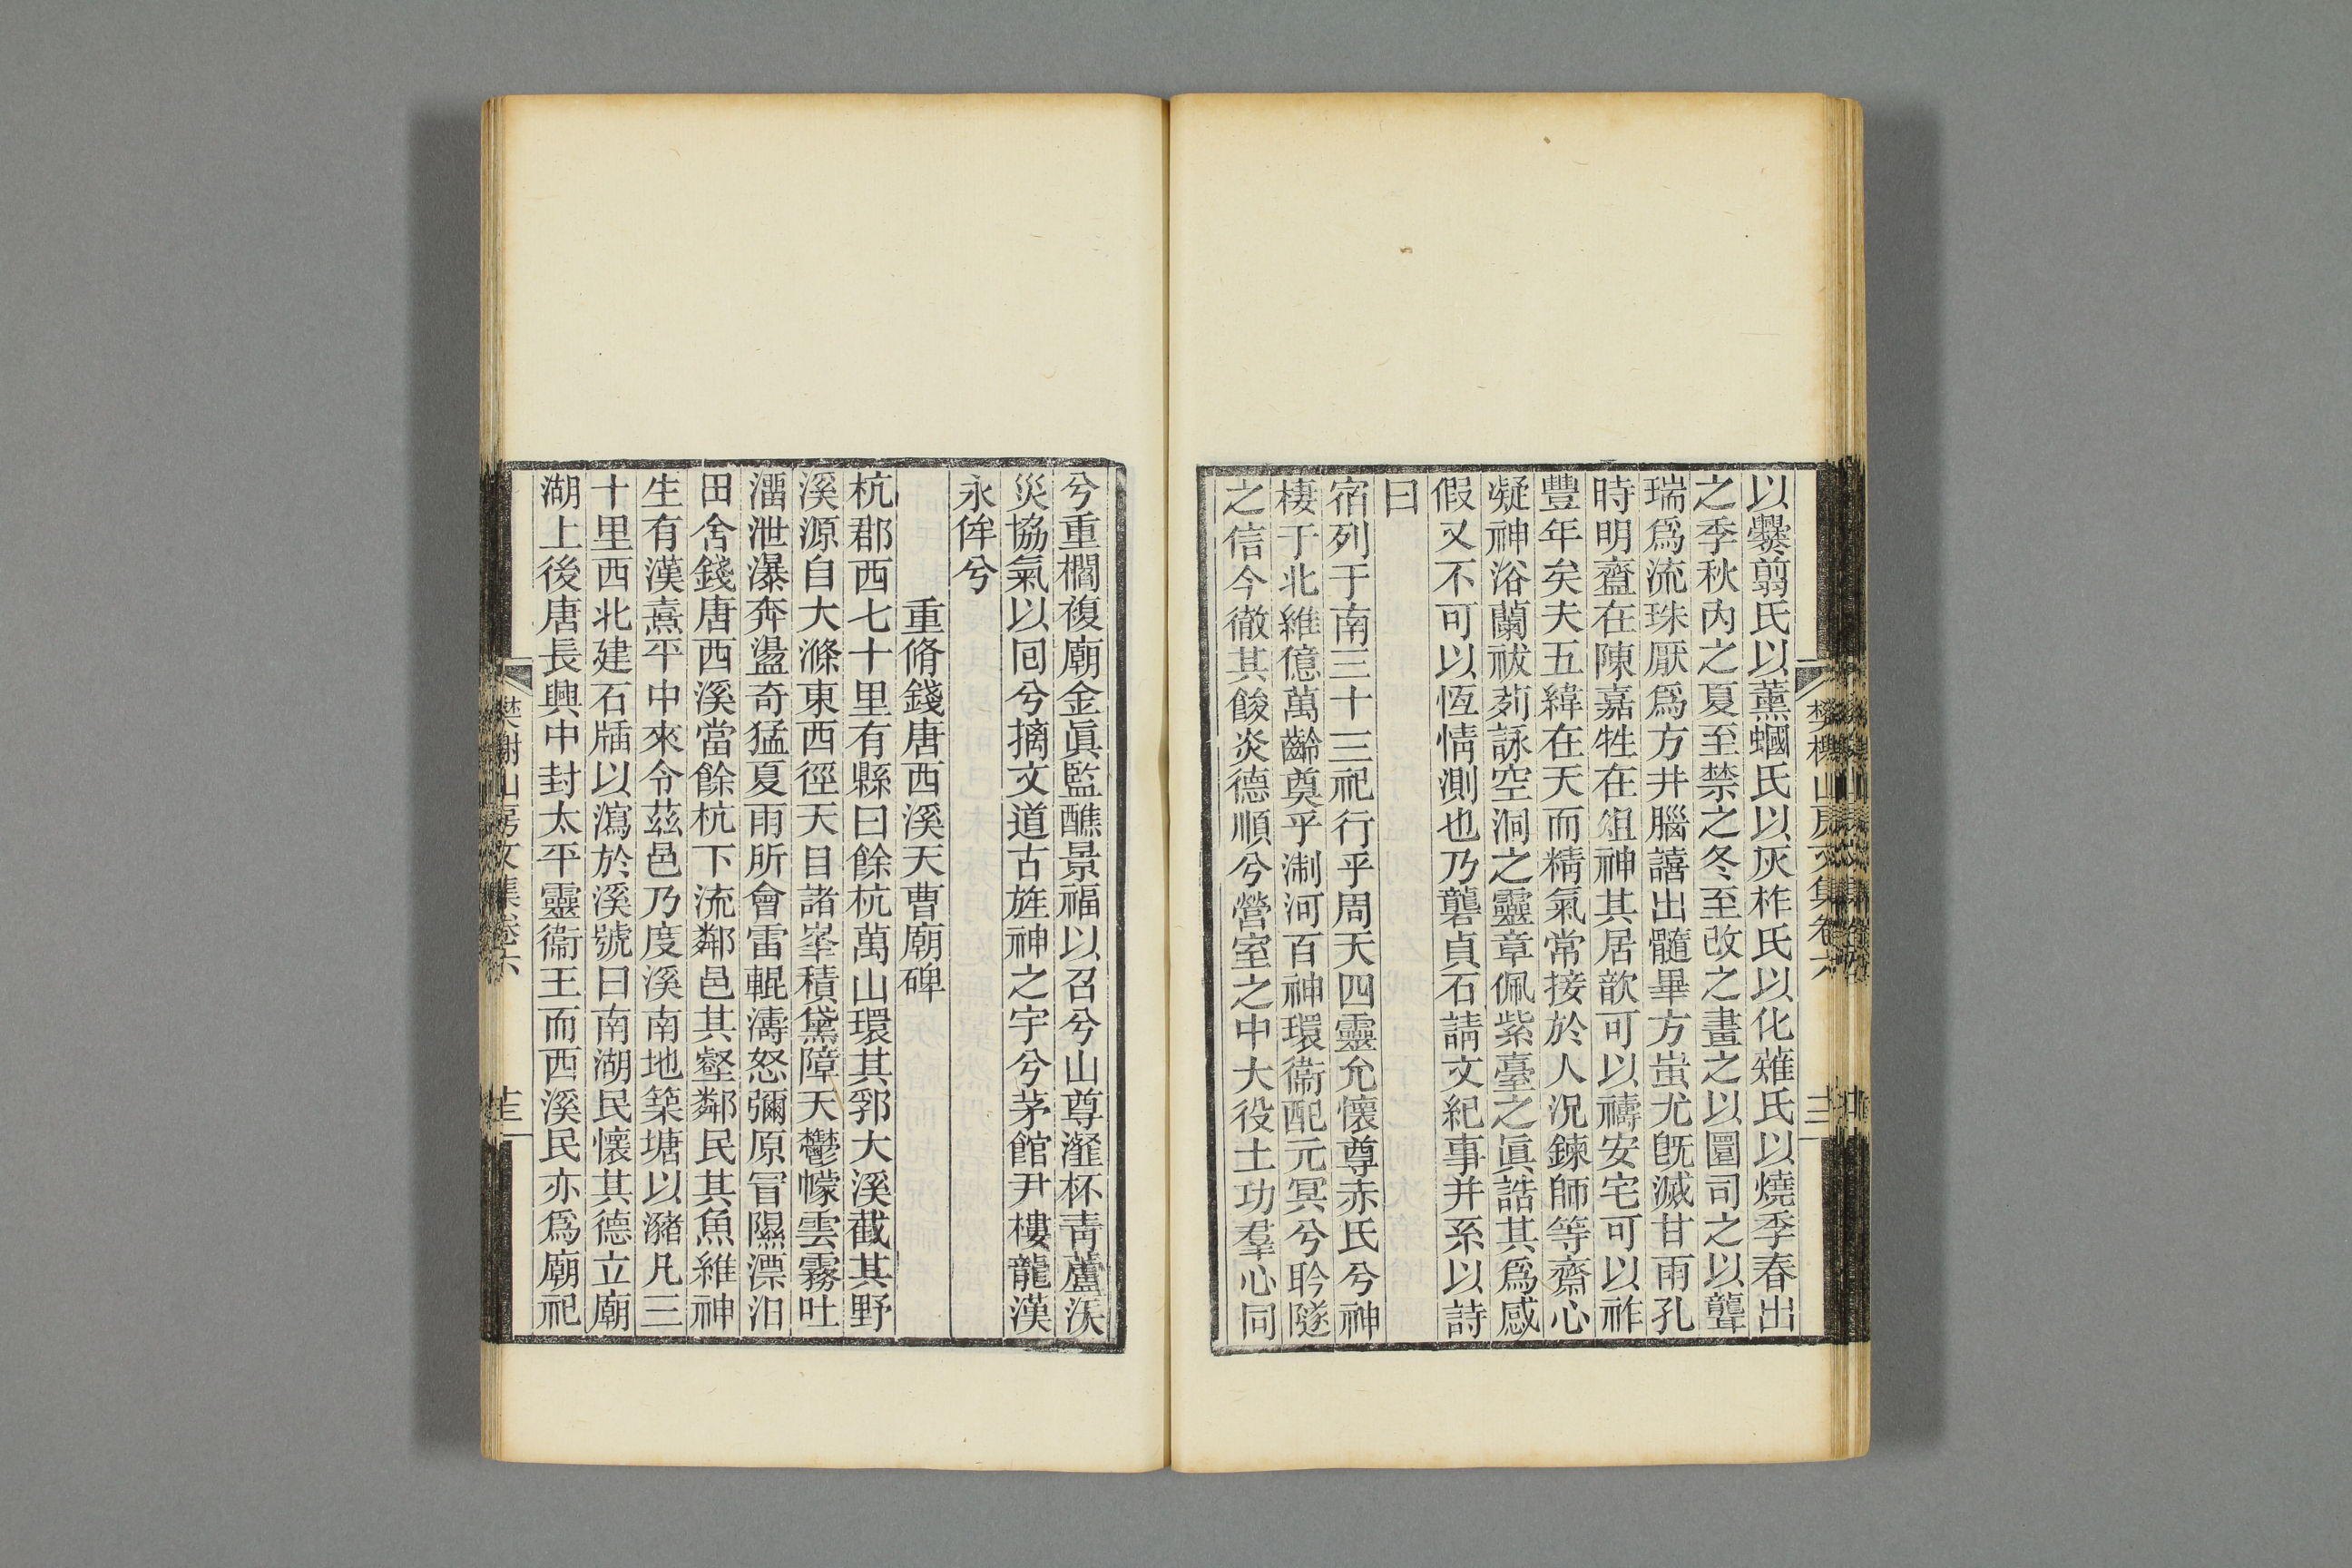 以爨翦氏以薰蟈氏以灰柞氏以化薙氏以燒季春出
之季秋內之夏至禁之冬至改之畫之以圜司之以聾
瑞爲流珠厭爲方井腦譆出髓畢方蚩尤旣滅甘雨孔
時明齍在陳嘉牲在俎神其居歆可以禱安宅可以祚
豐年矣夫五緯在天而精氣常接於人况鍊師等齋心
凝神浴蘭祓茢詠空洞之靈章佩紫臺之眞誥其爲感
假又不可以恆情測也乃礱貞石請文紀事幷系以詩
曰
宿列于南三十三祀行乎周天四靈允懷尊赤氏兮神
棲于北維億萬齡奠乎淛河百神環衞配元冥兮肹隧
之信今徹其餕炎德順兮營室之中大役土功羣心同
樊榭山房文集卷六
兮重櫩複廟金眞監醮景福以召兮山尊瀣杯靑蘆㳄
災協氣以回兮摛文道古旌神之宇兮茅館尹樓龍漢
永侔兮
重脩錢唐西溪天曹廟碑
杭郡西七十里有縣曰餘杭萬山環其郛大溪截其野
溪源自大滌東西徑天目諸峯積黛障天鬱幪雲霧吐
澑泄瀑奔盪奇猛夏雨所會雷輥濤怒彌原冒隰漂汩
田舍錢唐西溪當餘杭下流鄰邑其壑鄰民其魚維神
生有漢熹平中來令茲邑乃度溪南地築塘以瀦凡三
十里西北建石牐以瀉於溪號曰南湖民懷其德立廟
湖上後唐長興中封太平靈衞王而西溪民亦爲廟祀
樊榭山房文集卷六